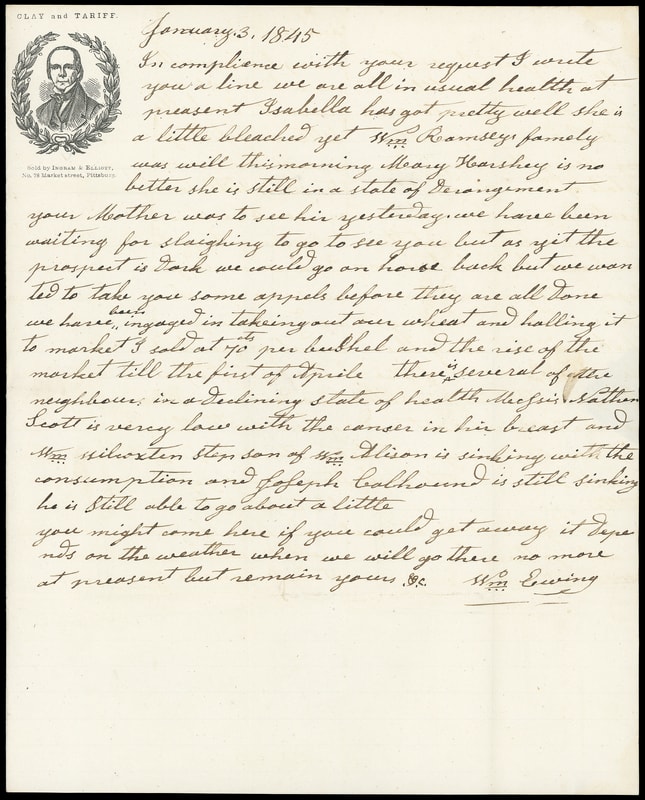 CLAY and TARIFF.
Sold by INGRAM & ELLIOTT,
No. 78 Market street, Pittsburg.
January. 3. 1845
In compliance with your request I write
you a line we are all in usual health at
preasent Isabella has got pretty well she is
a little bleached yet Wm Ramseys famely
was will this morning Mary Harshey is no
better she is still in a state of Derangement.
your Mother was to see hir yesterday. we have been
waiting for slaighing to go to see you but as yet the
prospect is Dark we could go on horse back but we wan
ted to take you some appels before they are all Done
we have been ingaged in takeing out our wheat and halling it
to market I sold at 70 cts per bushel and the rise of the
market till the first of Aprile there is several of the
neighbours in a Declining state of health Nathan
Scott is verry low with the canser in hir breast and
Wm Wilcoxten step son of Wm Alison is sinking with the
consumption and Joseph Calhound is still sinking
he is Still able to go about a little
you might come here if you could get away it Depe
nds on the weather when we will go there no more
at preasent but remain yours &c. Wm Ewing